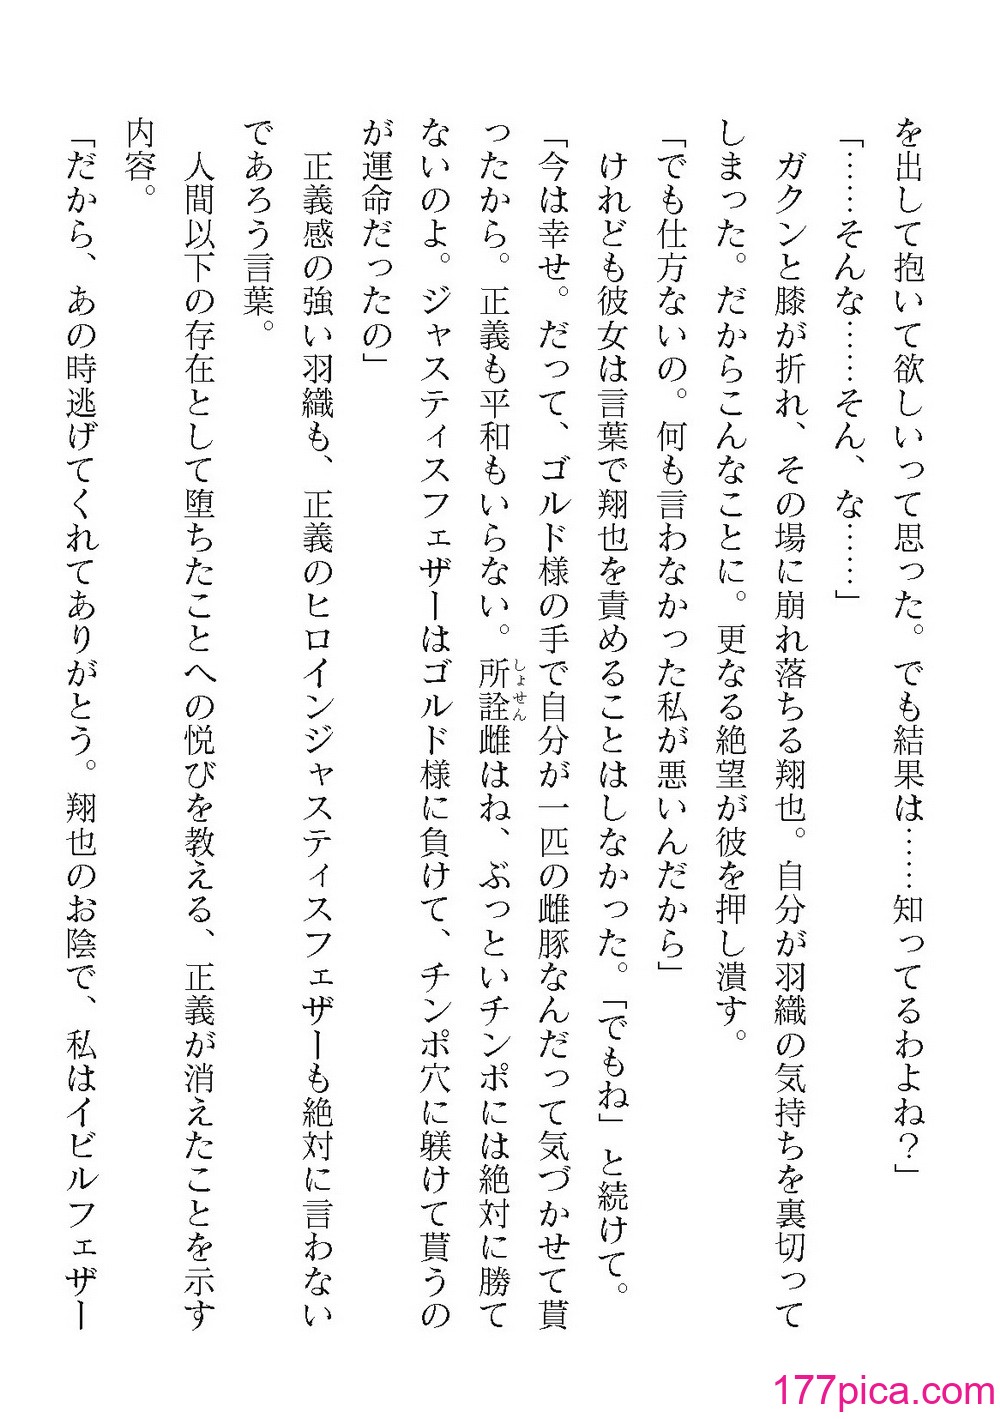 を出して抱いて欲しいって思った。でも結果は……知ってるわよね？」
「……そんな……そん、な……」
ガクンと膝が折れ、その場に崩れ落ちる翔也。自分が羽織の気持ちを裏切って
しまった。だからこんなことに。更なる絶望が彼を押し潰す。
「でも仕方ないの。何も言わなかった私が悪いんだから」
けれども彼女は言葉で翔也を責めることはしなかった。「でもね」と続けて。
「今は幸せ。だって、ゴルド様の手で自分が一匹の雌豚なんだって気づかせて貰
ったから。正義も平和もいらない。所詮雌はね、ぶっといチンポには絶対に勝て
しょせん
ないのよ。ジャスティスフェザーはゴルド様に負けて、チンポ穴に躾けて貰うの
が運命だったの」
正義感の強い羽織も、正義のヒロインジャスティスフェザーも絶対に言わない
であろう言葉。
人間以下の存在として堕ちたことへの悦びを教える、正義が消えたことを示す
内容。
「だから、あの時逃げてくれてありがとう。翔也のお陰で、私はイビルフェザー
177pica.com